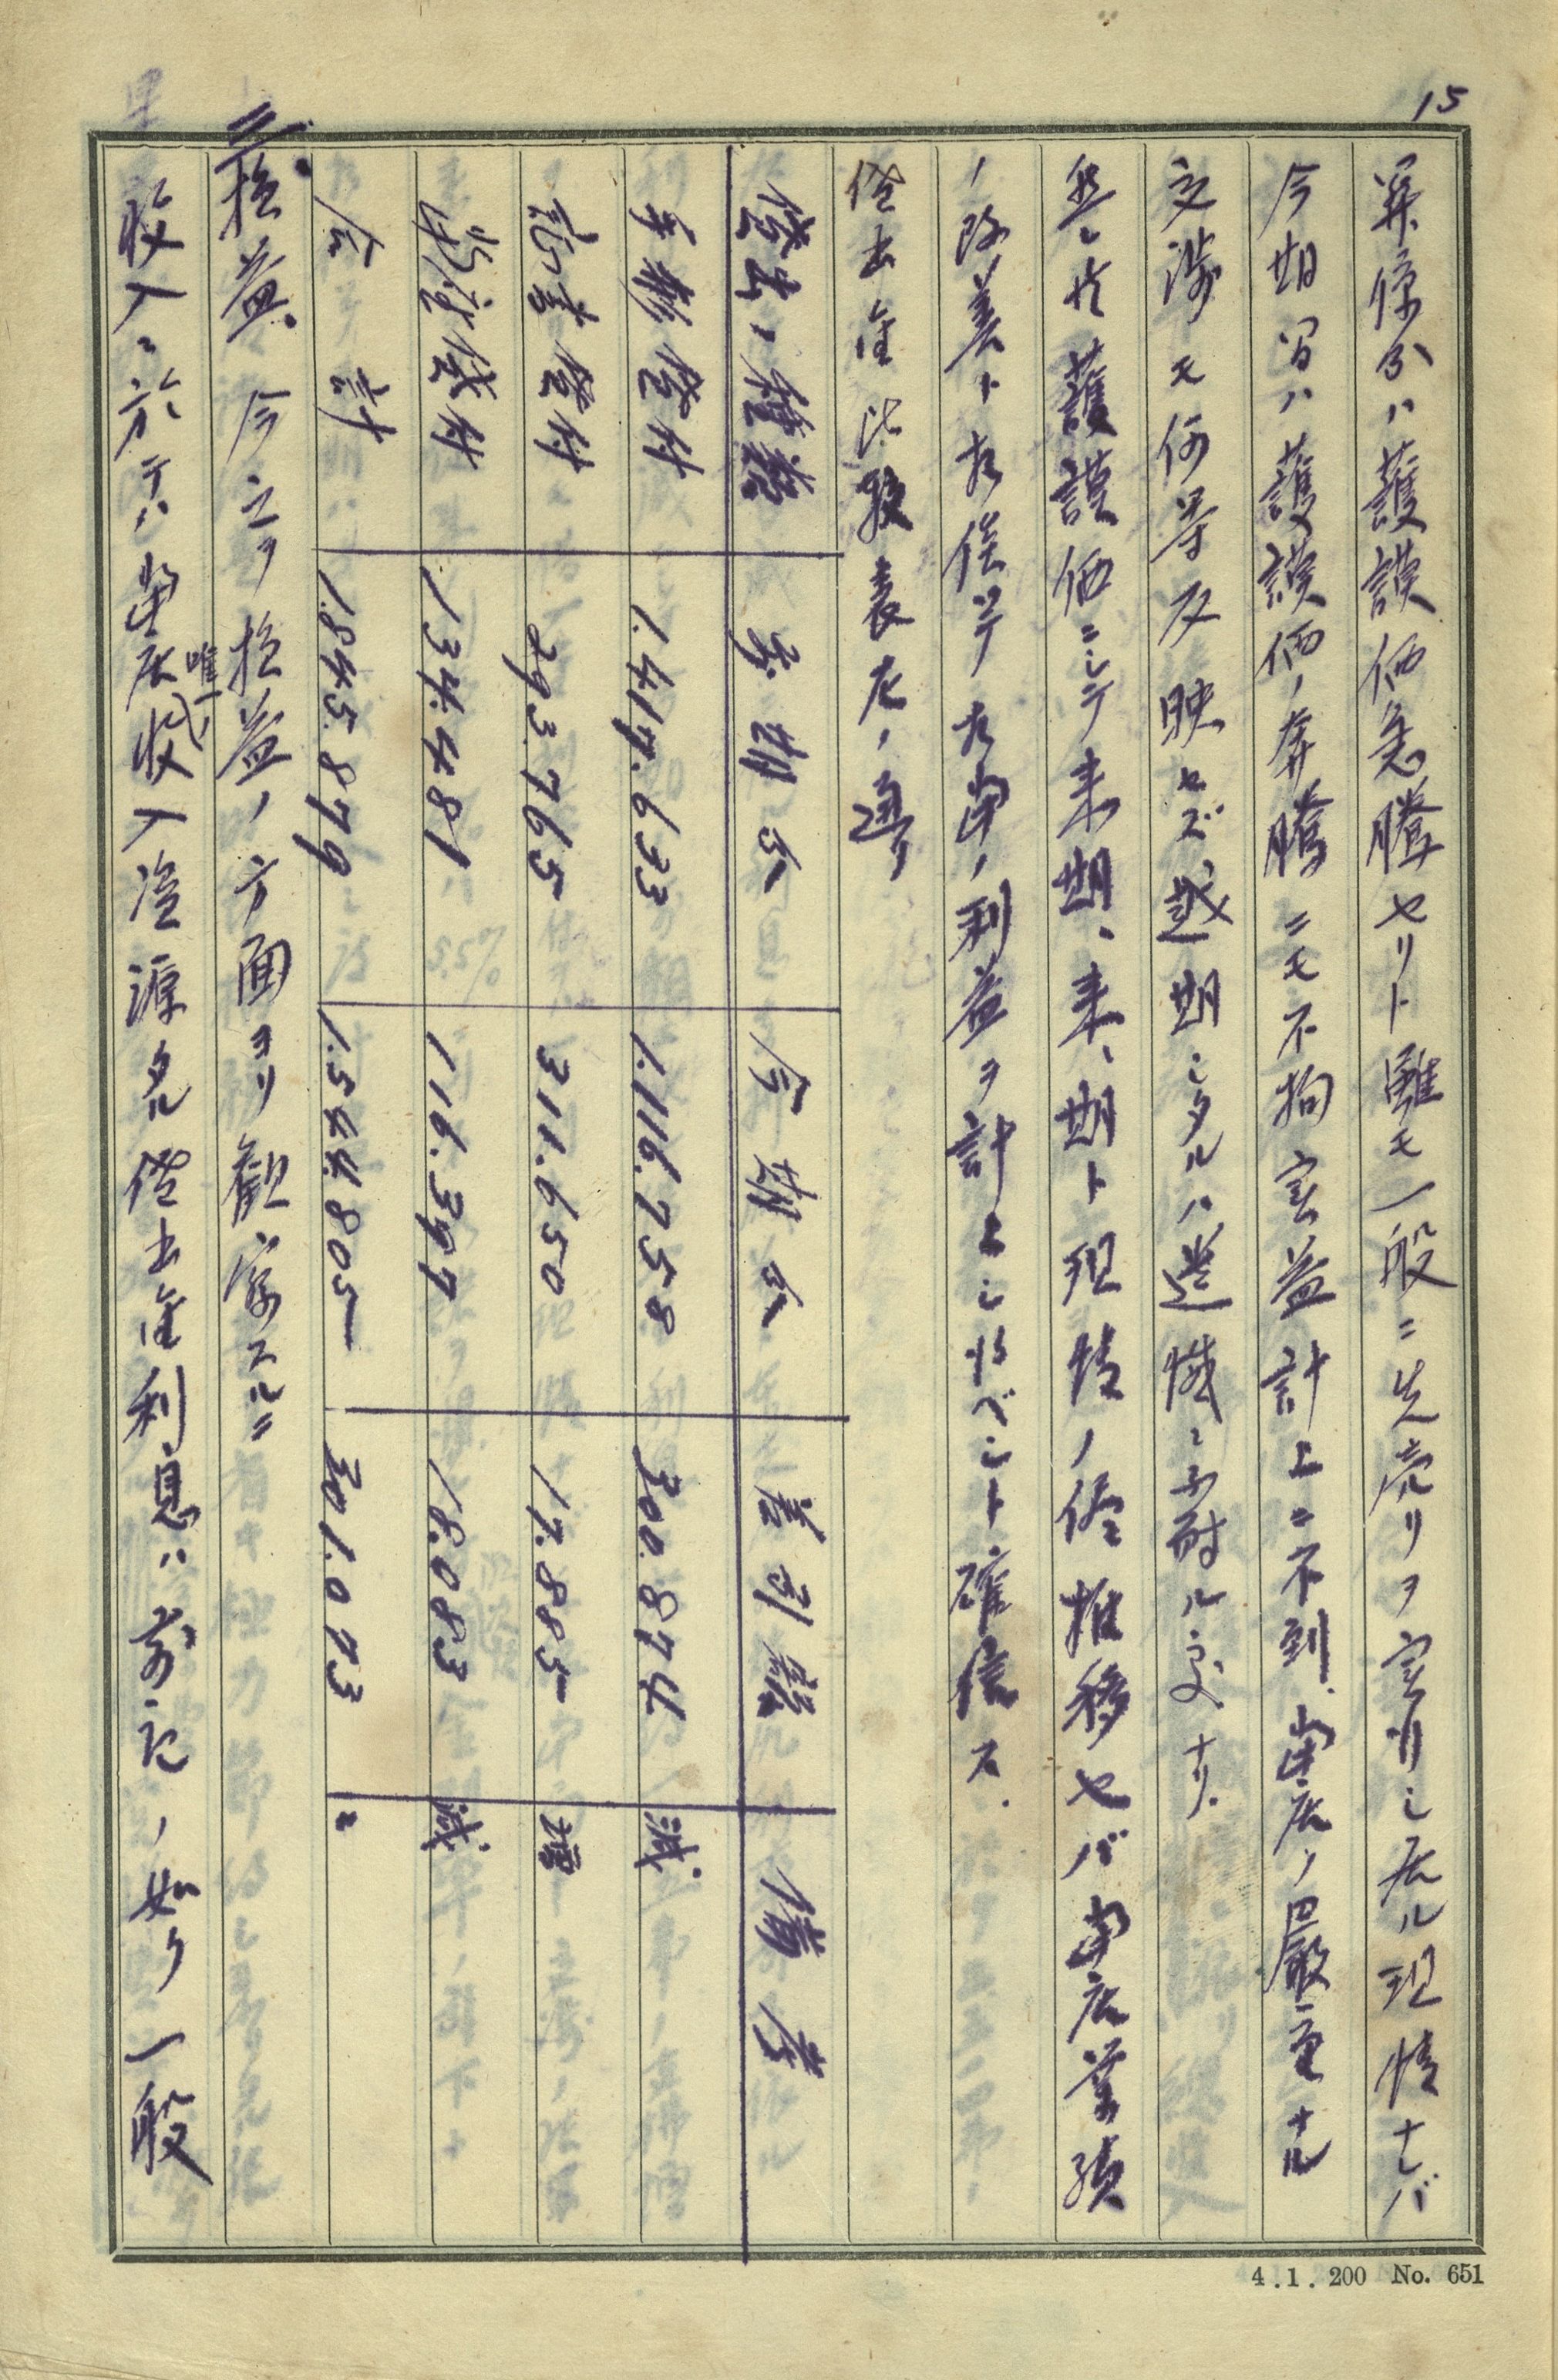 15
弗条分ハ護謨価急騰セリト雖モ一般ニ先売リヲ実行シ居ル現情ナレバ
今期間ハ護謨価ノ奔騰ニモ不拘実益計上ニ不到、当店ノ厳重ナル
交渉モ何等反映セズ越期シタルハ遺憾ニ不耐ル処ナリ.
然シ共護謨価ニシテ来期、来、期ト現情ノ侭推移セバ当店業績
ノ改善ト相俟テ相当ノ利益ヲ計上シ得ベシト確信ス.
貸出金比較表左ノ通リ
貸出ノ種類 前期分 今期分 差引額 備考
手形貸付 1.417.633 1.116.758 300.874 減
証書貸付 293.765 311.650 17.885 増
当座貸付 134.481 116.397 18.083 減
合計 1.845.879 1.544.805 301.073 〃
三. 損益. 今之ヲ損益ノ方面ヨリ観察スルニ
収入ニ於テハ当店唯一ノ収入資源タル貸出金利息ハ前記ノ如ク一般
4.1.200 No. 651